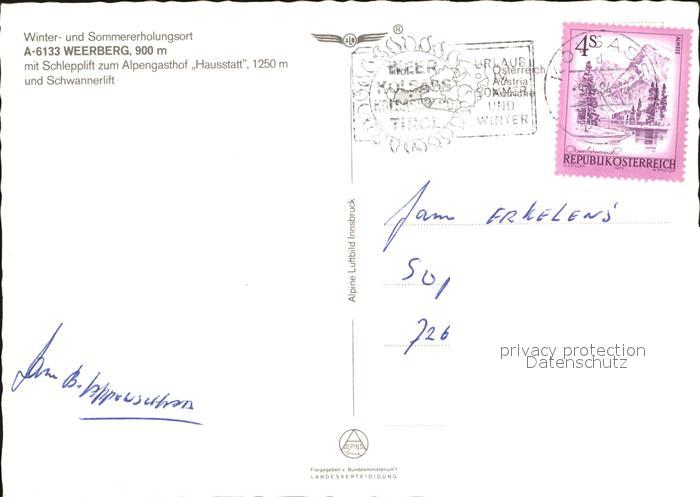 Winter- und Sommererholungsort
A-6133 WEERBERG, 900 m
mit Schlepplift zum Alpengasthof „Hausstatt", 1250 m
und Schwannerlift
®
Tirol
Österreich
Austria
Autriche
WEER
KOLSASS
TIROL
URLAUB
SOMMER
UND
WINTER
KOLSASS
4 S
ALMSEE
REPUBLIK ÖSTERREICH
Alpine Luftbild Innsbruck
Fam ERKELENS
726
privacy protection
Datenschutz
ALPINA
Druck
Freigegeben v. Bundesministerium f.
LANDESVERTEIDIGUNG